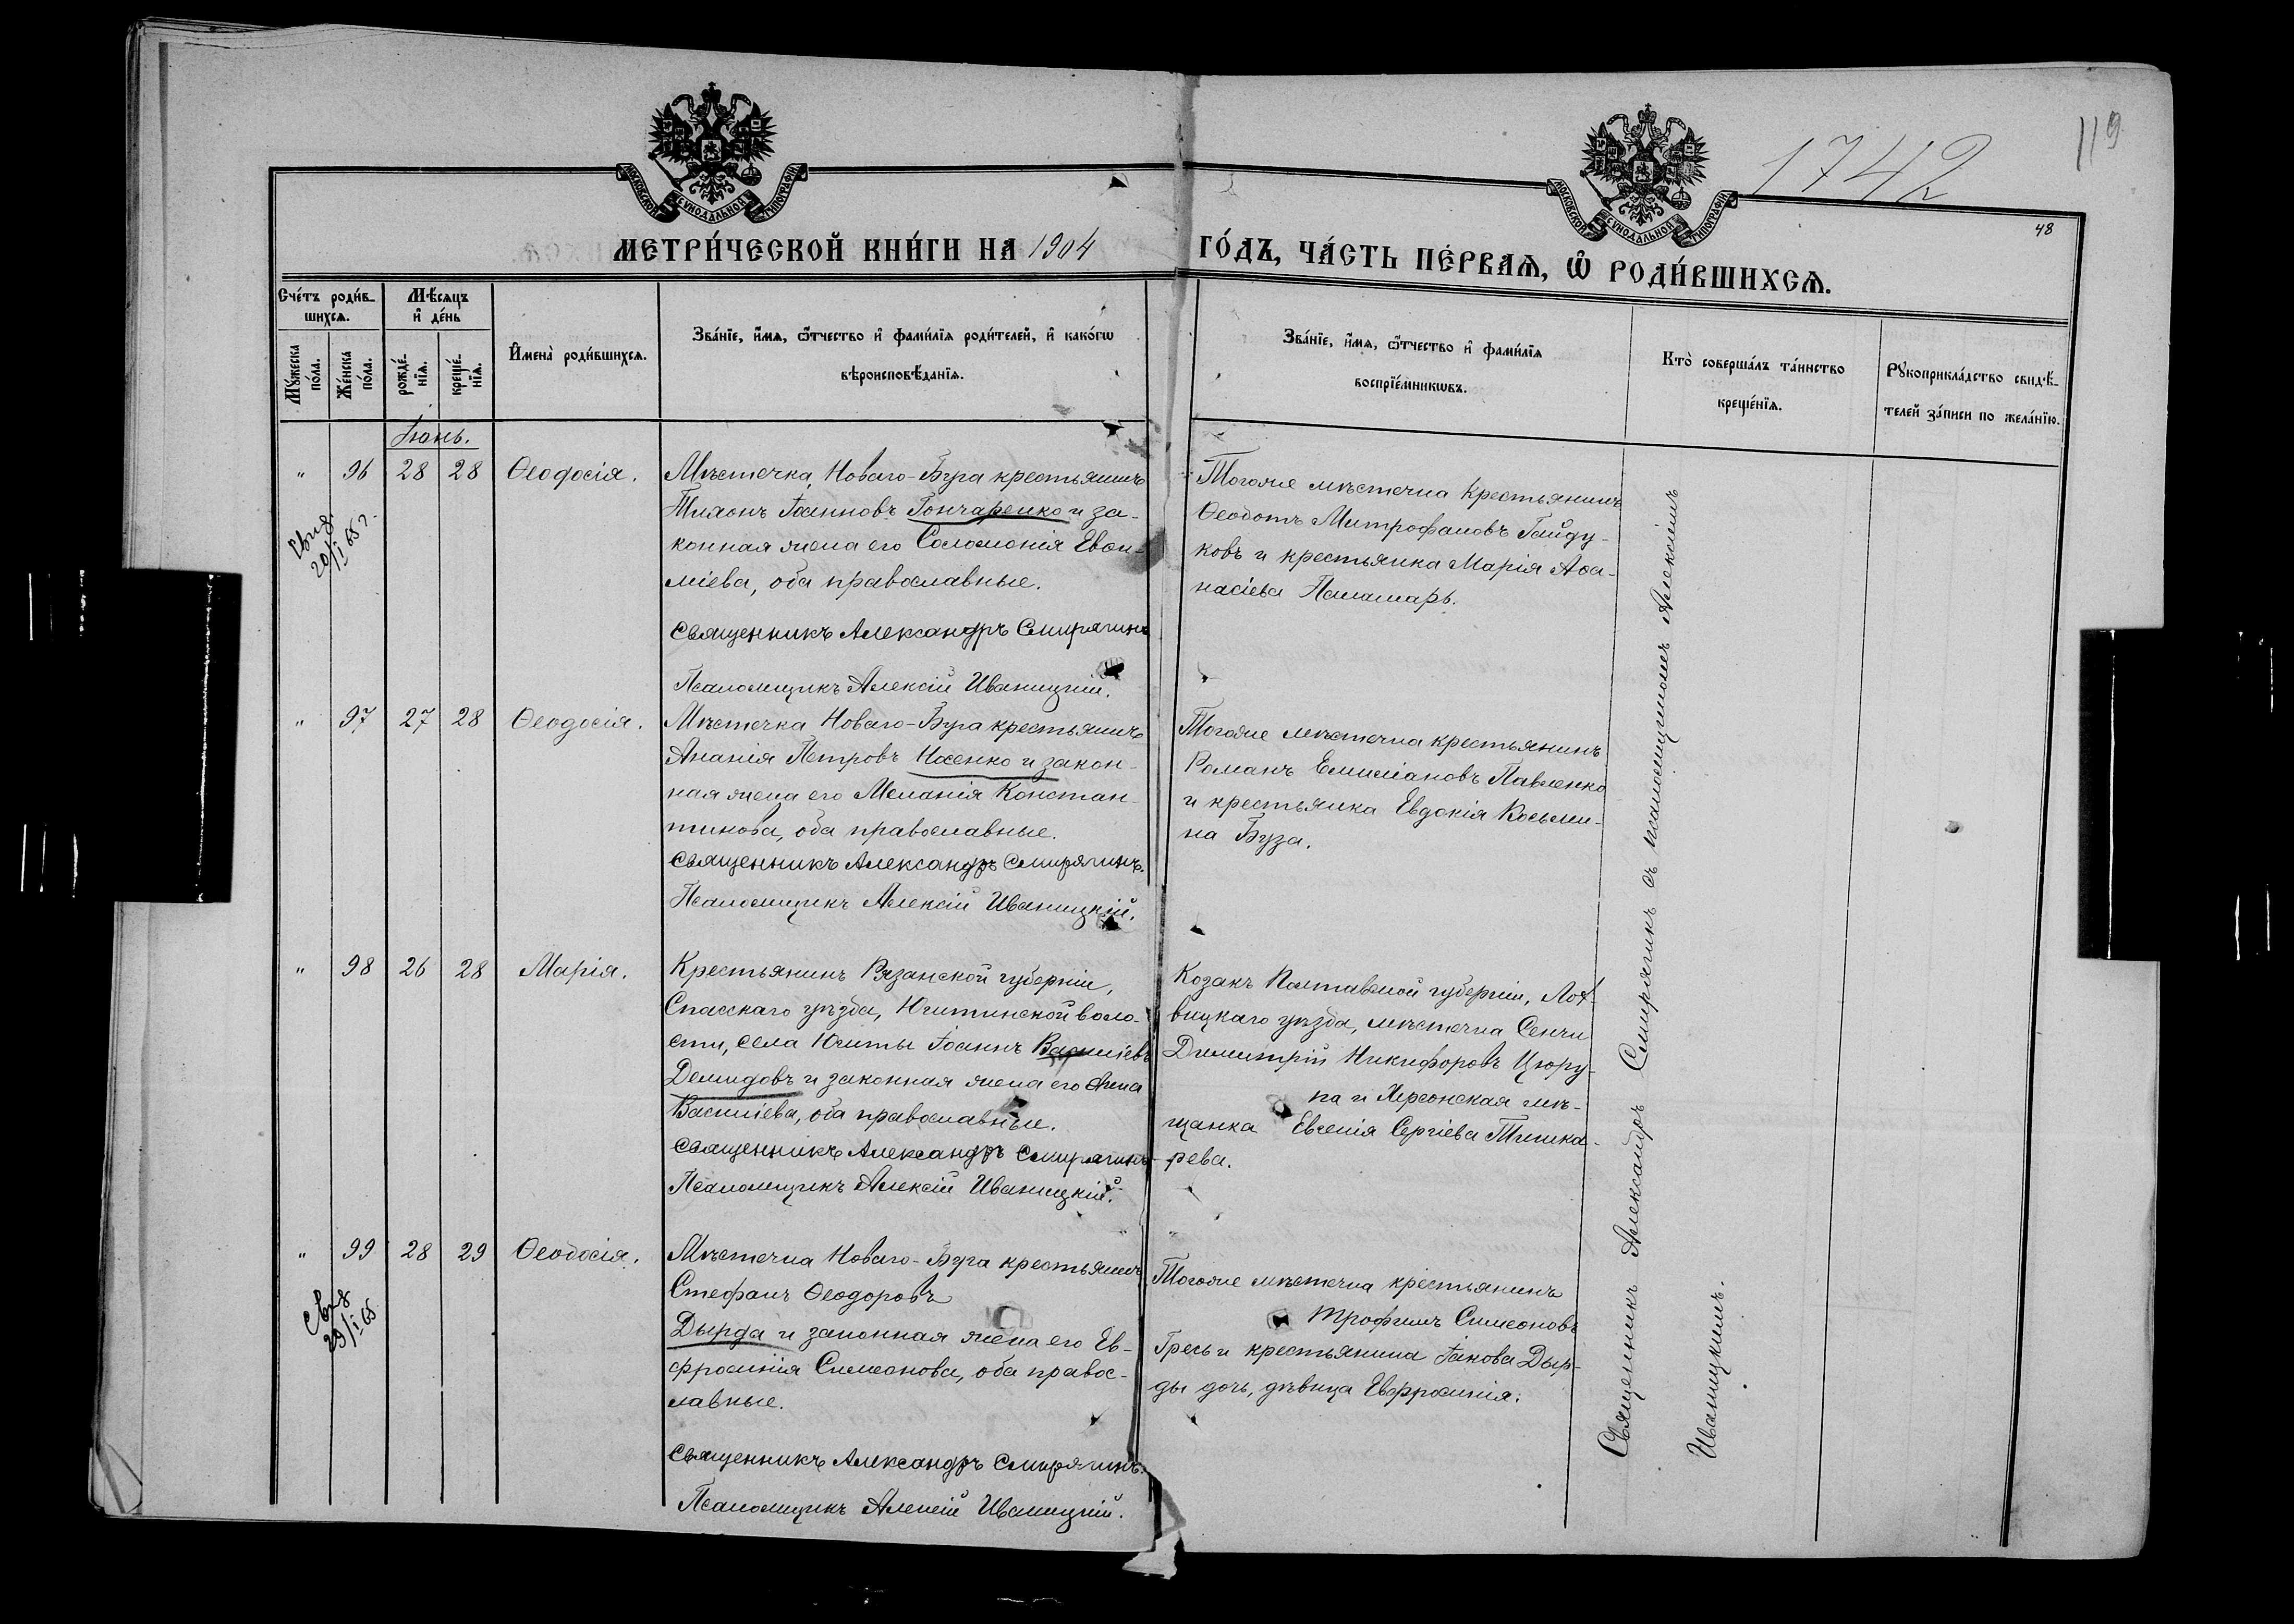 1742
119
48
МОСКОВСКОЙ СУНОДАЛЬНОЙ ТИПОГРАФІИ
МОСКОВСКОЙ СУНОДАЛЬНОЙ ТИПОГРАФІИ
МЕТРИ́ЧЕСКОЙ КНИ́ГИ НА 1904 ГО́ДЪ, ЧА́СТЬ ПЕ́РВАѦ, Ѽ РОДИ́ВШИХСѦ.
Сче́тъ роди́в-
шихсѧ.
Мѣ́сѧцъ
и҆ де́нь
Мꙋ́жеска
по́ла.
Же́нска
по́ла.
рожде́-
нїѧ.
креще́-
нїѧ.
И҆мена̀ роди́вшихсѧ.
Зва́нїе, и҆́мѧ, ѻ҆́тчество и҆ фами́лїѧ роди́телей, и҆ како́гѡ
вѣроисповѣ́данїѧ.
Зва́нїе, и҆́мѧ, ѻ҆́тчество и҆ фами́лїѧ
воспрїе́мникѡвъ.
Кто̀ соверша́лъ та́инство
креще́нїѧ.
Рꙋкоприкла́дство свидѣ́-
телей за́писи по жела́нїю.
Іюнь.
" 96 28 28 Ѳеодосія.
Свид.
20/I 65 г.
Мѣстечка Новаго-Буга крестьянинъ
Тихонъ Іоанновъ Гончаренко и за-
конная жена его Соломонія Евѳи-
міева, оба православные.
Священникъ Александръ Смирягинъ
Псаломщикъ Алексій Иваницкій.
Тогоже мѣстечка крестьянинъ
Ѳеодотъ Митрофановъ Гайду-
ковъ и крестьянка Марія Аѳа-
насіева Паламарь.
" 97 27 28 Ѳеодосія.
Мѣстечка Новаго-Буга крестьянинъ
Ананія Петровъ Носенко и закон-
ная жена его Меланія Констан-
тинова, оба православные.
Священникъ Александръ Смирягинъ.
Псаломщикъ Алексій Иваницкій.
Тогоже мѣстечка крестьянинъ
Романъ Емиліановъ Павленко
и крестьянка Евдокія Косьми-
на Буза.
" 98 26 28 Марія.
Крестьянинъ Рязанской губерніи,
Спасскаго уѣзда, Ижитинской воло-
сти, села Ижиты Іоаннъ Василіевъ
Демидовъ и законная жена его Анна
Василіева, оба православные.
Священникъ Александръ Смирягинъ
Псаломщикъ Алексій Иваницкій.
Козакъ Полтавской губерніи, Лох-
вицкаго уѣзда, мѣстечка Сенчи
Димитрій Никифоровъ Цюру-
па и Херсонская мѣ-
щанка Евгенія Сергіева Тишка-
рева.
" 99 28 29 Ѳеодосія.
Свид
29/I 65
Мѣстечка Новаго-Буга крестьянинъ
Стефанъ Ѳеодоровъ
Дырда и законная жена его Ев-
фросинія Симеонова, оба правос-
лавные.
Священникъ Александръ Смирягинъ.
Псаломщикъ Алексій Иваницкій.
Тогоже мѣстечка крестьянинъ
Трофимъ Симеоновъ
Гресь и крестьянина Іакова Дыр-
ды дочь, дѣвица Евфросинія.
Священникъ Александръ Смирягинъ съ псаломщикомъ Алексіемъ
Иваницкимъ.